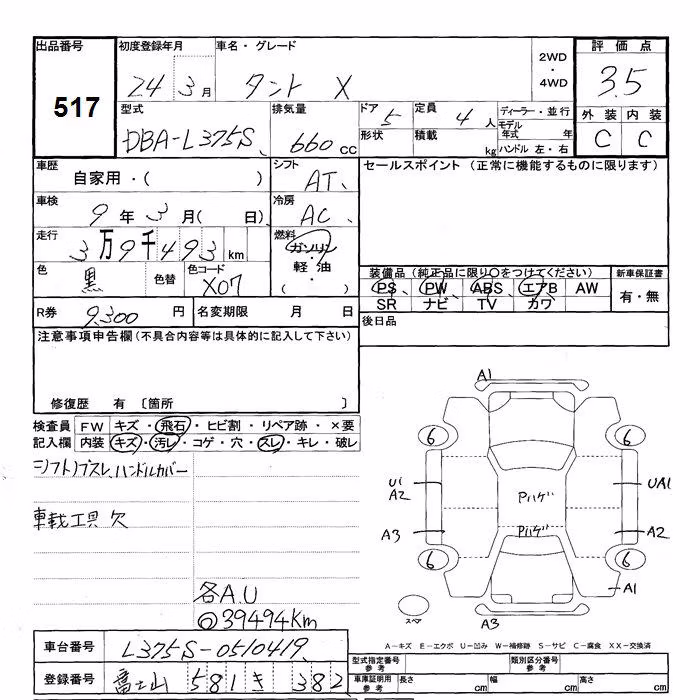 出品番号
517
初度登録年月
24 3月
車名・グレード
タント X
2WD
・
4WD
評価点
3.5
外装 内装
C C
型式
DBA-L375S
排気量
660 cc
ドア 5
定員 4人
形状
積載 kg
ディーラー・並行
モデル年式 年
ハンドル 左・右
車歴
自家用・( )
シフト
AT
セールスポイント (正常に機能するものに限ります)
車検
9年 3月( 日)
冷房
AC
走行
3万9千493km
燃料
ガソリン
・
軽油
( )
色
黒
色替
色コード
X07
装備品(純正品に限り○をつけてください)
PS PW ABS エアB AW
SR ナビ TV カワ
新車保証書
有・無
R券 9,300円
名変期限 月 日
後日品
注意事項申告欄(不具合内容等は具体的に記入して下さい)
修復歴 有 〔箇所 〕
検査員記入欄
FW キズ・飛石・ヒビ割・リペア跡・×要
内装 キズ・汚レ・コゲ・穴・スレ・キレ・破レ
シフトノブスレ、ハンドルカバー
車載工具欠
各A.U
39494Km
A1
6 6
U1
A2
UA1
Pハゲ
Pハゲ
A3
A2
6 6
A1
スペア
A3
A-キズ E-エクボ U-凹み W-補修跡 S-サビ C-腐食 XX-交換済
車台番号 L375S-0510419
登録番号 富士山 581 き 382
型式指定番号 参考
類別区分番号 参考
車庫証明用 参考
長さ cm
幅 cm
高さ cm